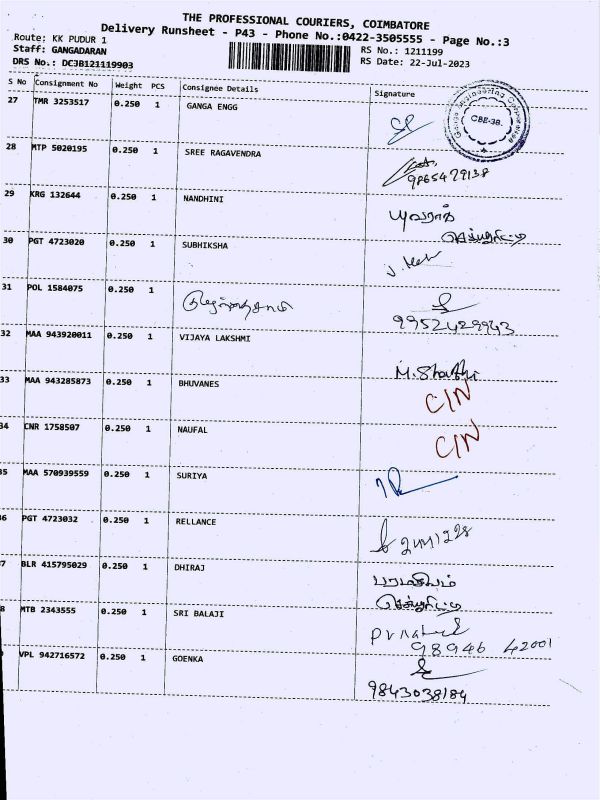 THE PROFESSIONAL COURIERS, COIMBATORE
Delivery Runsheet - P43 - Phone No.:0422-3505555 - Page No.:3
Route: KK PUDUR 1
Staff: GANGADARAN
DRS No.: DC3B121119903
RS No.: 1211199
RS Date: 22-Jul-2023
S No Consignment No Weight PCS Consignee Details Signature
27 TMR 3253517 0.250 1 GANGA ENGG
CBE-38.
28 MTP 5020195 0.250 1 SREE RAGAVENDRA
29 KRG 132644 0.250 1 NANDHINI
யுவராஜ்
30 PGT 4723020 0.250 1 SUBHIKSHA
31 POL 1584075 0.250 1
9952429943
32 MAA 943920011 0.250 1 VIJAYA LAKSHMI
M. Shanthi
33 MAA 943285873 0.250 1 BHUVANES C/N
34 CNR 1758507 0.250 1 NAUFAL C/N
35 MAA 570939559 0.250 1 SURIYA
36 PGT 4723032 0.250 1 RELLANCE
7 BLR 415795029 0.250 1 DHIRAJ
8 MTB 2343555 0.250 1 SRI BALAJI
98946 42001
VPL 942716572 0.250 1 GOENKA
9843038184